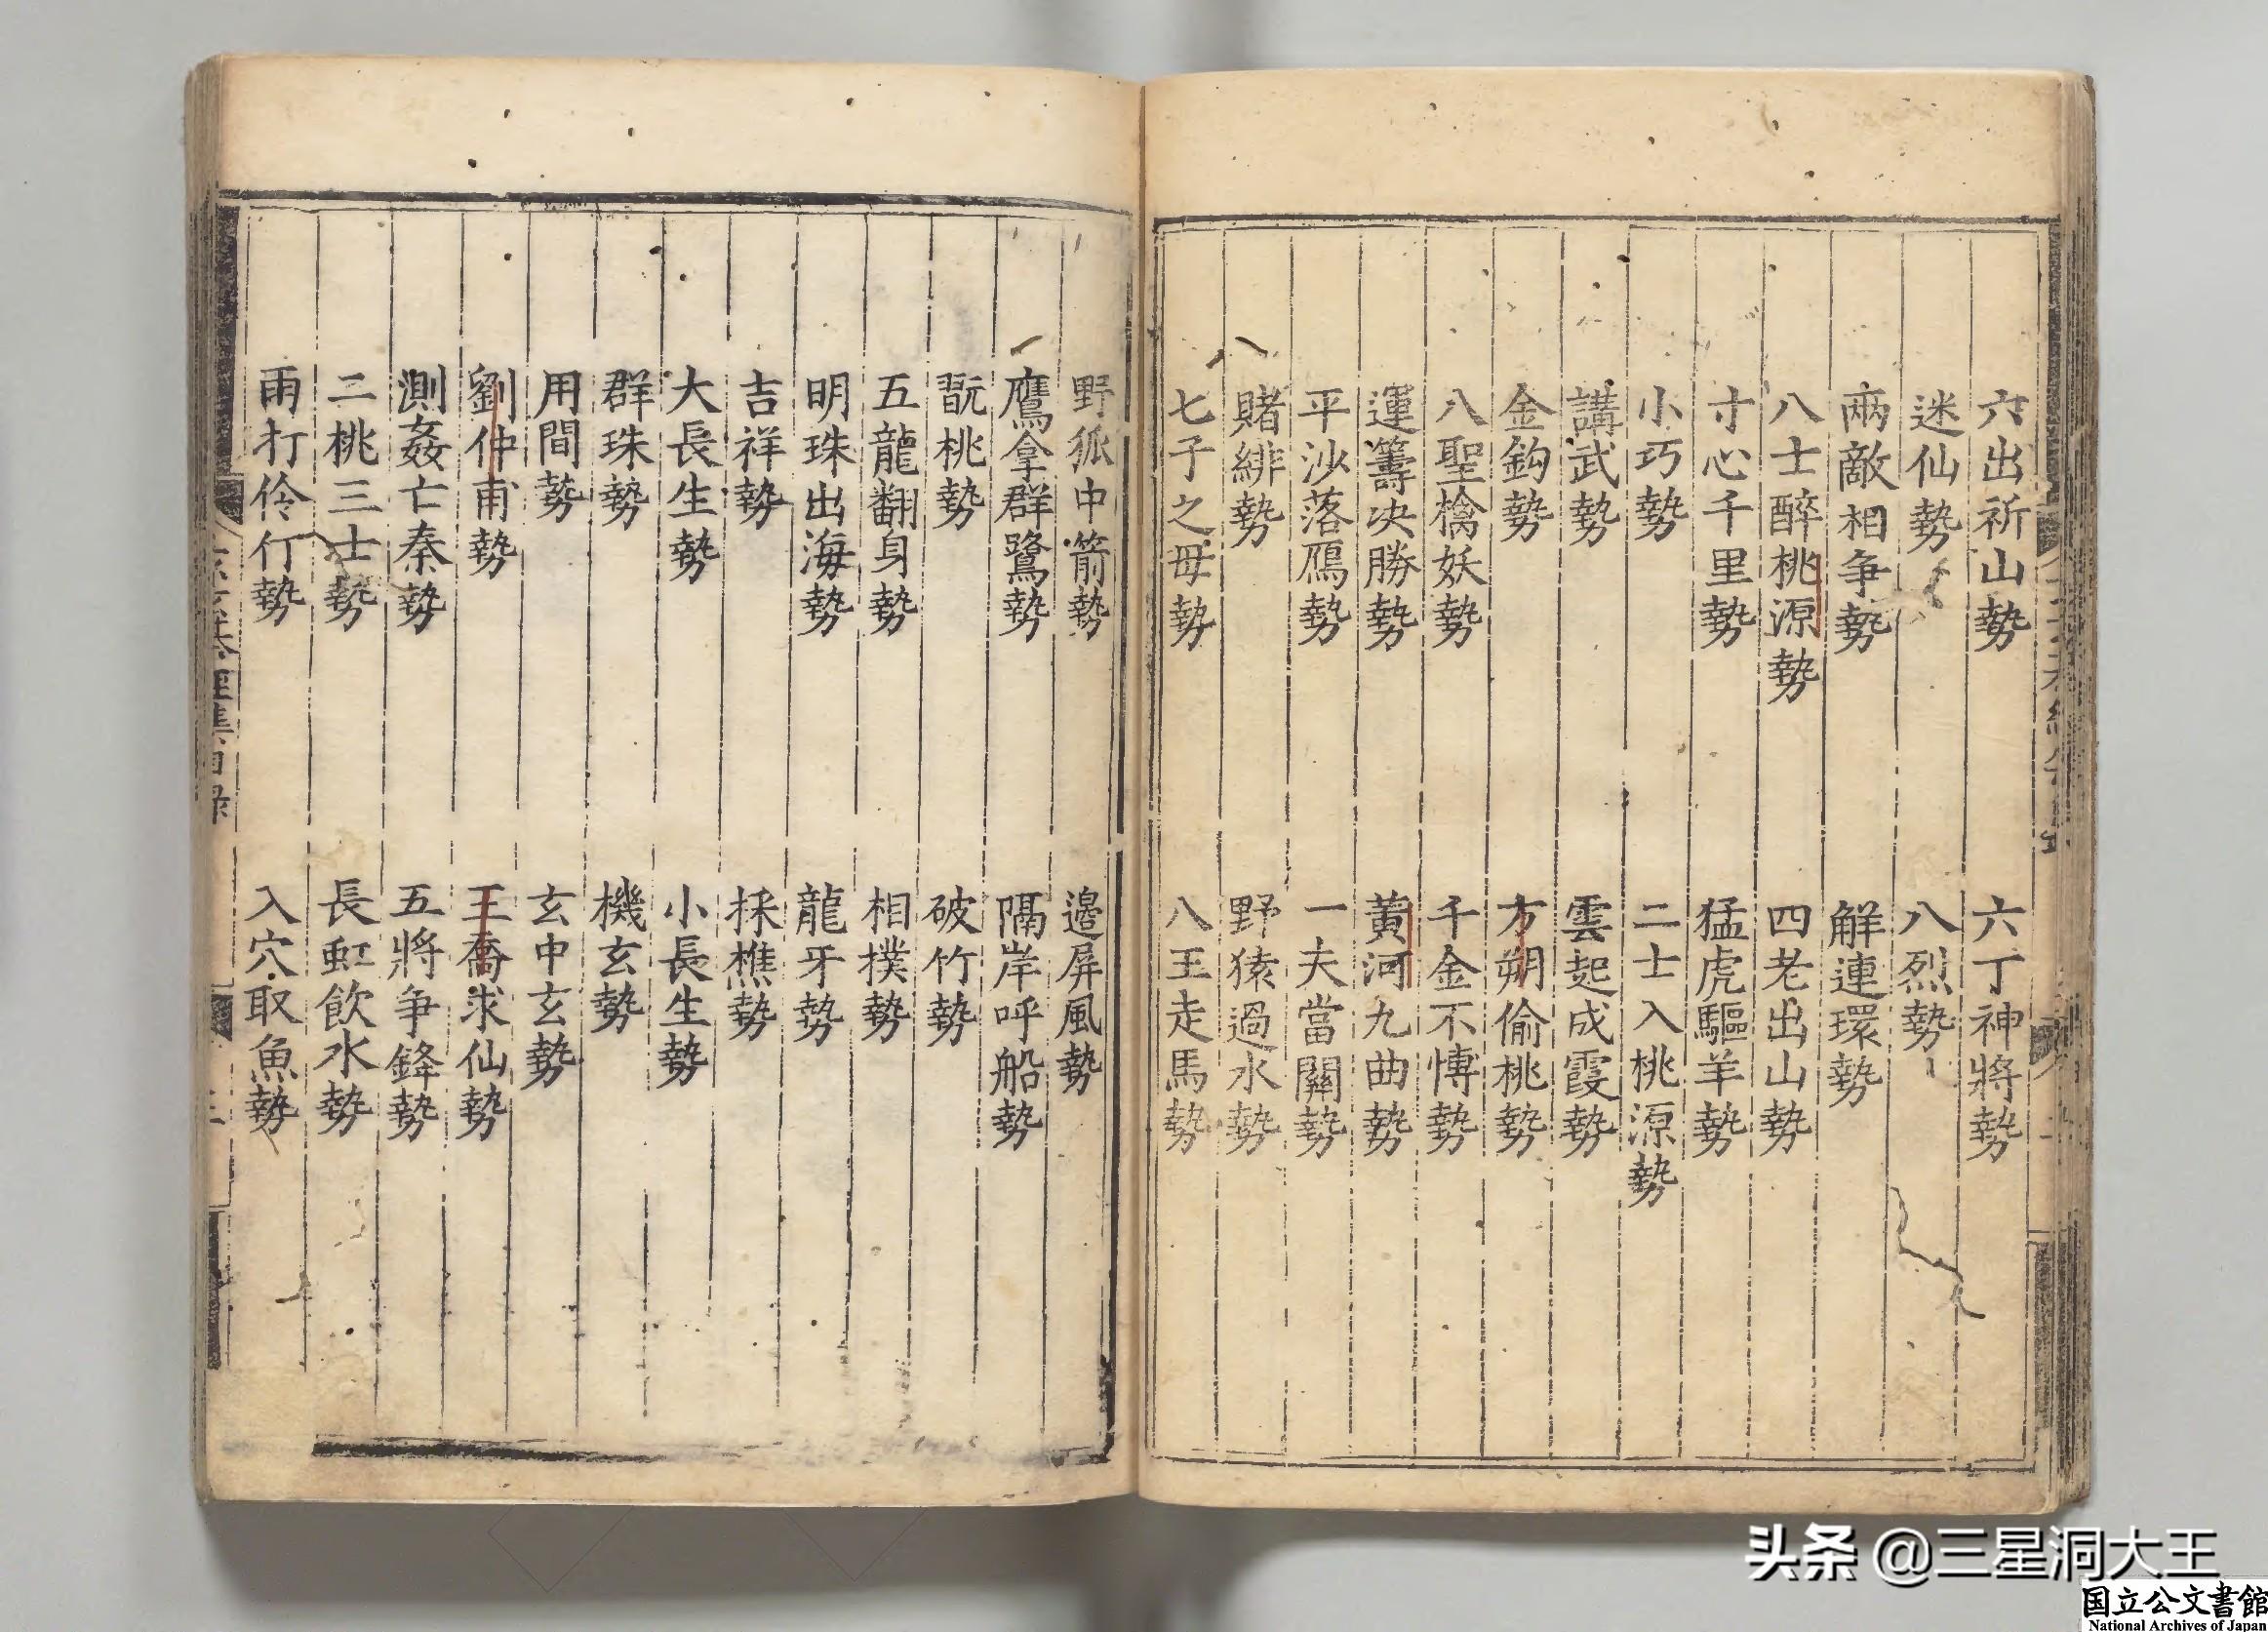 六出祈山勢
六丁神將勢
迷仙勢
八烈勢
兩敵相争勢
解連環勢
八士醉桃源勢
四老出山勢
寸心千里勢
猛虎驅羊勢
小巧勢
二士入桃源勢
講武勢
雲起成霞勢
金鈎勢
方朔偷桃勢
八聖擒妖勢
千金不慱勢
運籌决勝勢
黄河九曲勢
平沙落鴈勢
一夫當關勢
賭緋勢
野猿過水勢
七子之毋勢
八王走馬勢
野狐中箭勢
邉屏風勢
鷹拿群鷺勢
隔岸呼船勢
翫桃勢
破竹勢
五龍翻身勢
相撲勢
明珠出海勢
龍牙勢
吉祥勢
採樵勢
大長生勢
小長生勢
群珠勢
機玄勢
用間勢
玄中玄勢
劉仲甫勢
王喬求仙勢
測姦亡秦勢
五將争鋒勢
二桃三士勢
長虹飲水勢
雨打伶仃勢
入穴取魚勢
头条 @三星洞大王
国立公文書館
National Archives of Japan